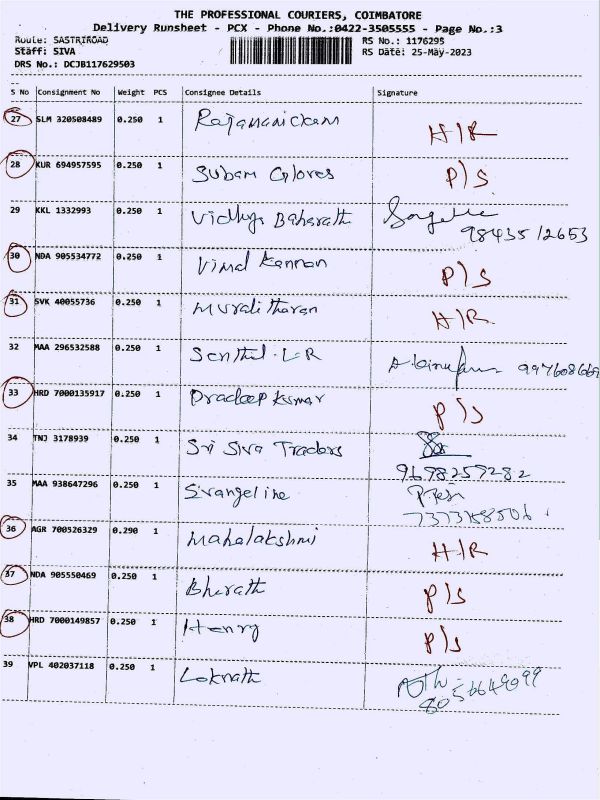 THE PROFESSIONAL COURIERS, COIMBATORE
Delivery Runsheet - PCX - Phone No.:0422-3505555 - Page No.:3
Route: SASTRIROAD RS No.: 1176295
Staff: SIVA RS Date: 25-May-2023
DRS No.: DCJB117629503
S No Consignment No Weight PCS Consignee Details Signature
27 SLM 320508489 0.250 1 Rajamanickam H/R
28 KUR 694957595 0.250 1 Subam Colores P/S
29 KKL 1332993 0.250 1 Vidhya Baharath
98435 12653
30 NDA 905534772 0.250 1 Vimal Kannan P/S
31 SVK 40055736 0.250 1 Muralitharan H/R
32 MAA 296532588 0.250 1 Senthil L R
33 HRD 7000135917 0.250 1 Pradeep Kumar P/S
34 TNJ 3178939 0.250 1 Sri Siva Traders
9698259282
35 MAA 938647296 0.250 1 Sivangeline
36 AGR 700526329 0.290 1 Mahalakshmi H/R
37 NDA 905550469 0.250 1 Bharath P/S
38 HRD 7000149857 0.250 1 Henry P/S
39 VPL 402037118 0.250 1 Loknath